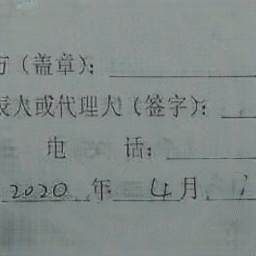 方（盖章）：
表人或代理人（签字）：
电 话：
2020 年 4 月